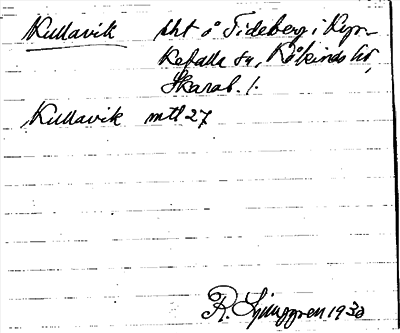 Kullavik  tht å Tideberg i Kyr-
kefalla sn, Kåkinds hd,
Skarab. l.
Kullavik  mtl 27
R. Ljunggren 1930